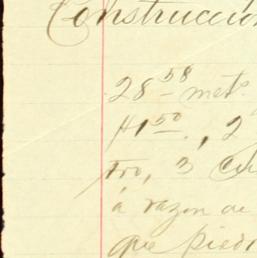 Construcción
28 58 met.
41 50., 2
tro, 3
á razon de
que piedr